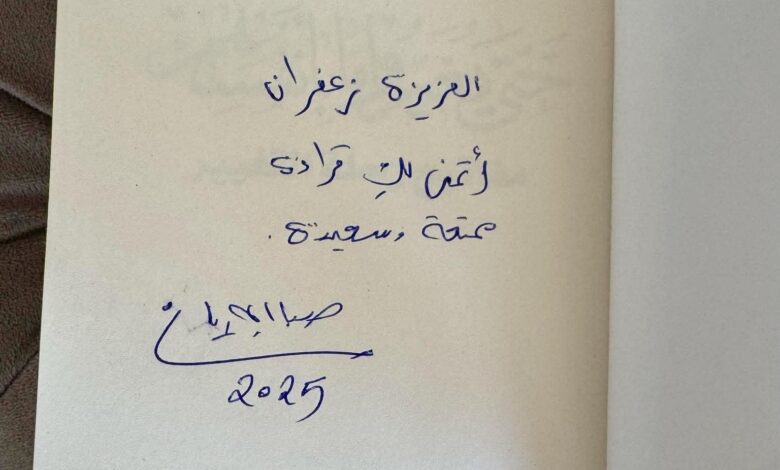 العزيزة زعفران
أتمنى لكِ قراءة
ممتعة وسعيدة.
صبا
2025